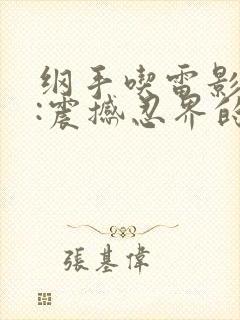 纲手喫雷影
:震撼忍界的
張基偉